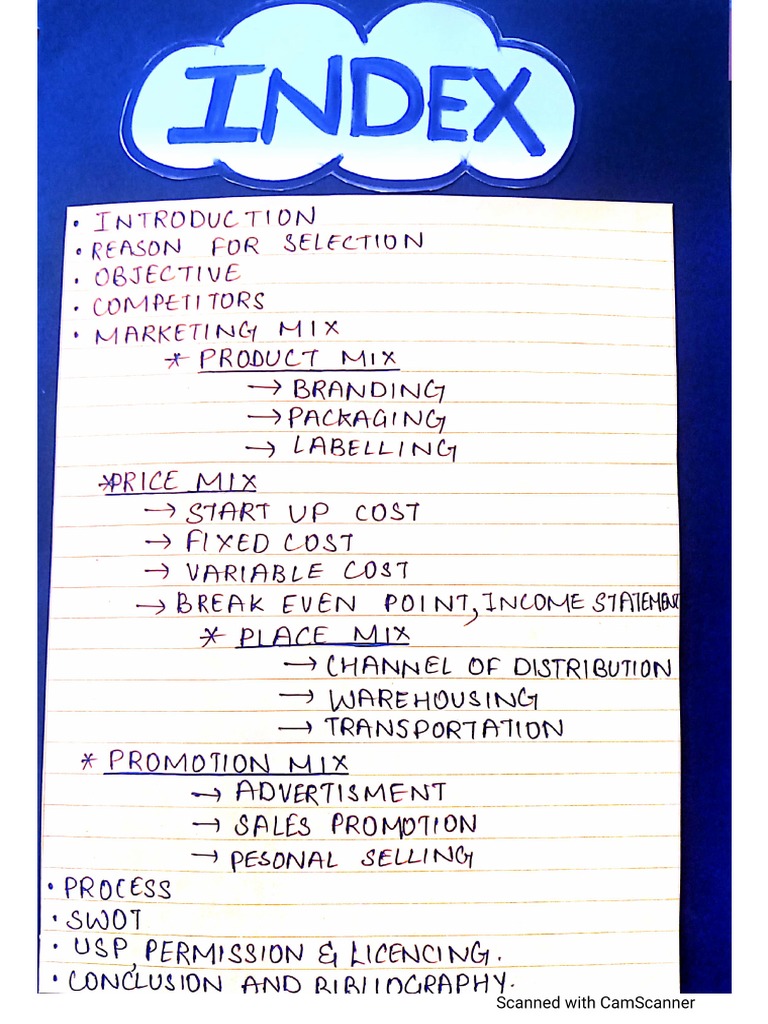 INDEX
• INTRODUCTION
• REASON FOR SELECTION
• OBJECTIVE
• COMPETITORS
• MARKETING MIX
* PRODUCT MIX
→ BRANDING
→ PACKAGING
→ LABELLING
* PRICE MIX
→ START UP COST
→ FIXED COST
→ VARIABLE COST
→ BREAK EVEN POINT, INCOME STATEMENT
* PLACE MIX
→ CHANNEL OF DISTRIBUTION
→ WAREHOUSING
→ TRANSPORTATION
* PROMOTION MIX
→ ADVERTISMENT
→ SALES PROMOTION
→ PESONAL SELLING
• PROCESS
• SWOT
• USP, PERMISSION & LICENCING.
• CONCLUSION AND BIBLIOGRAPHY.
Scanned with CamScanner